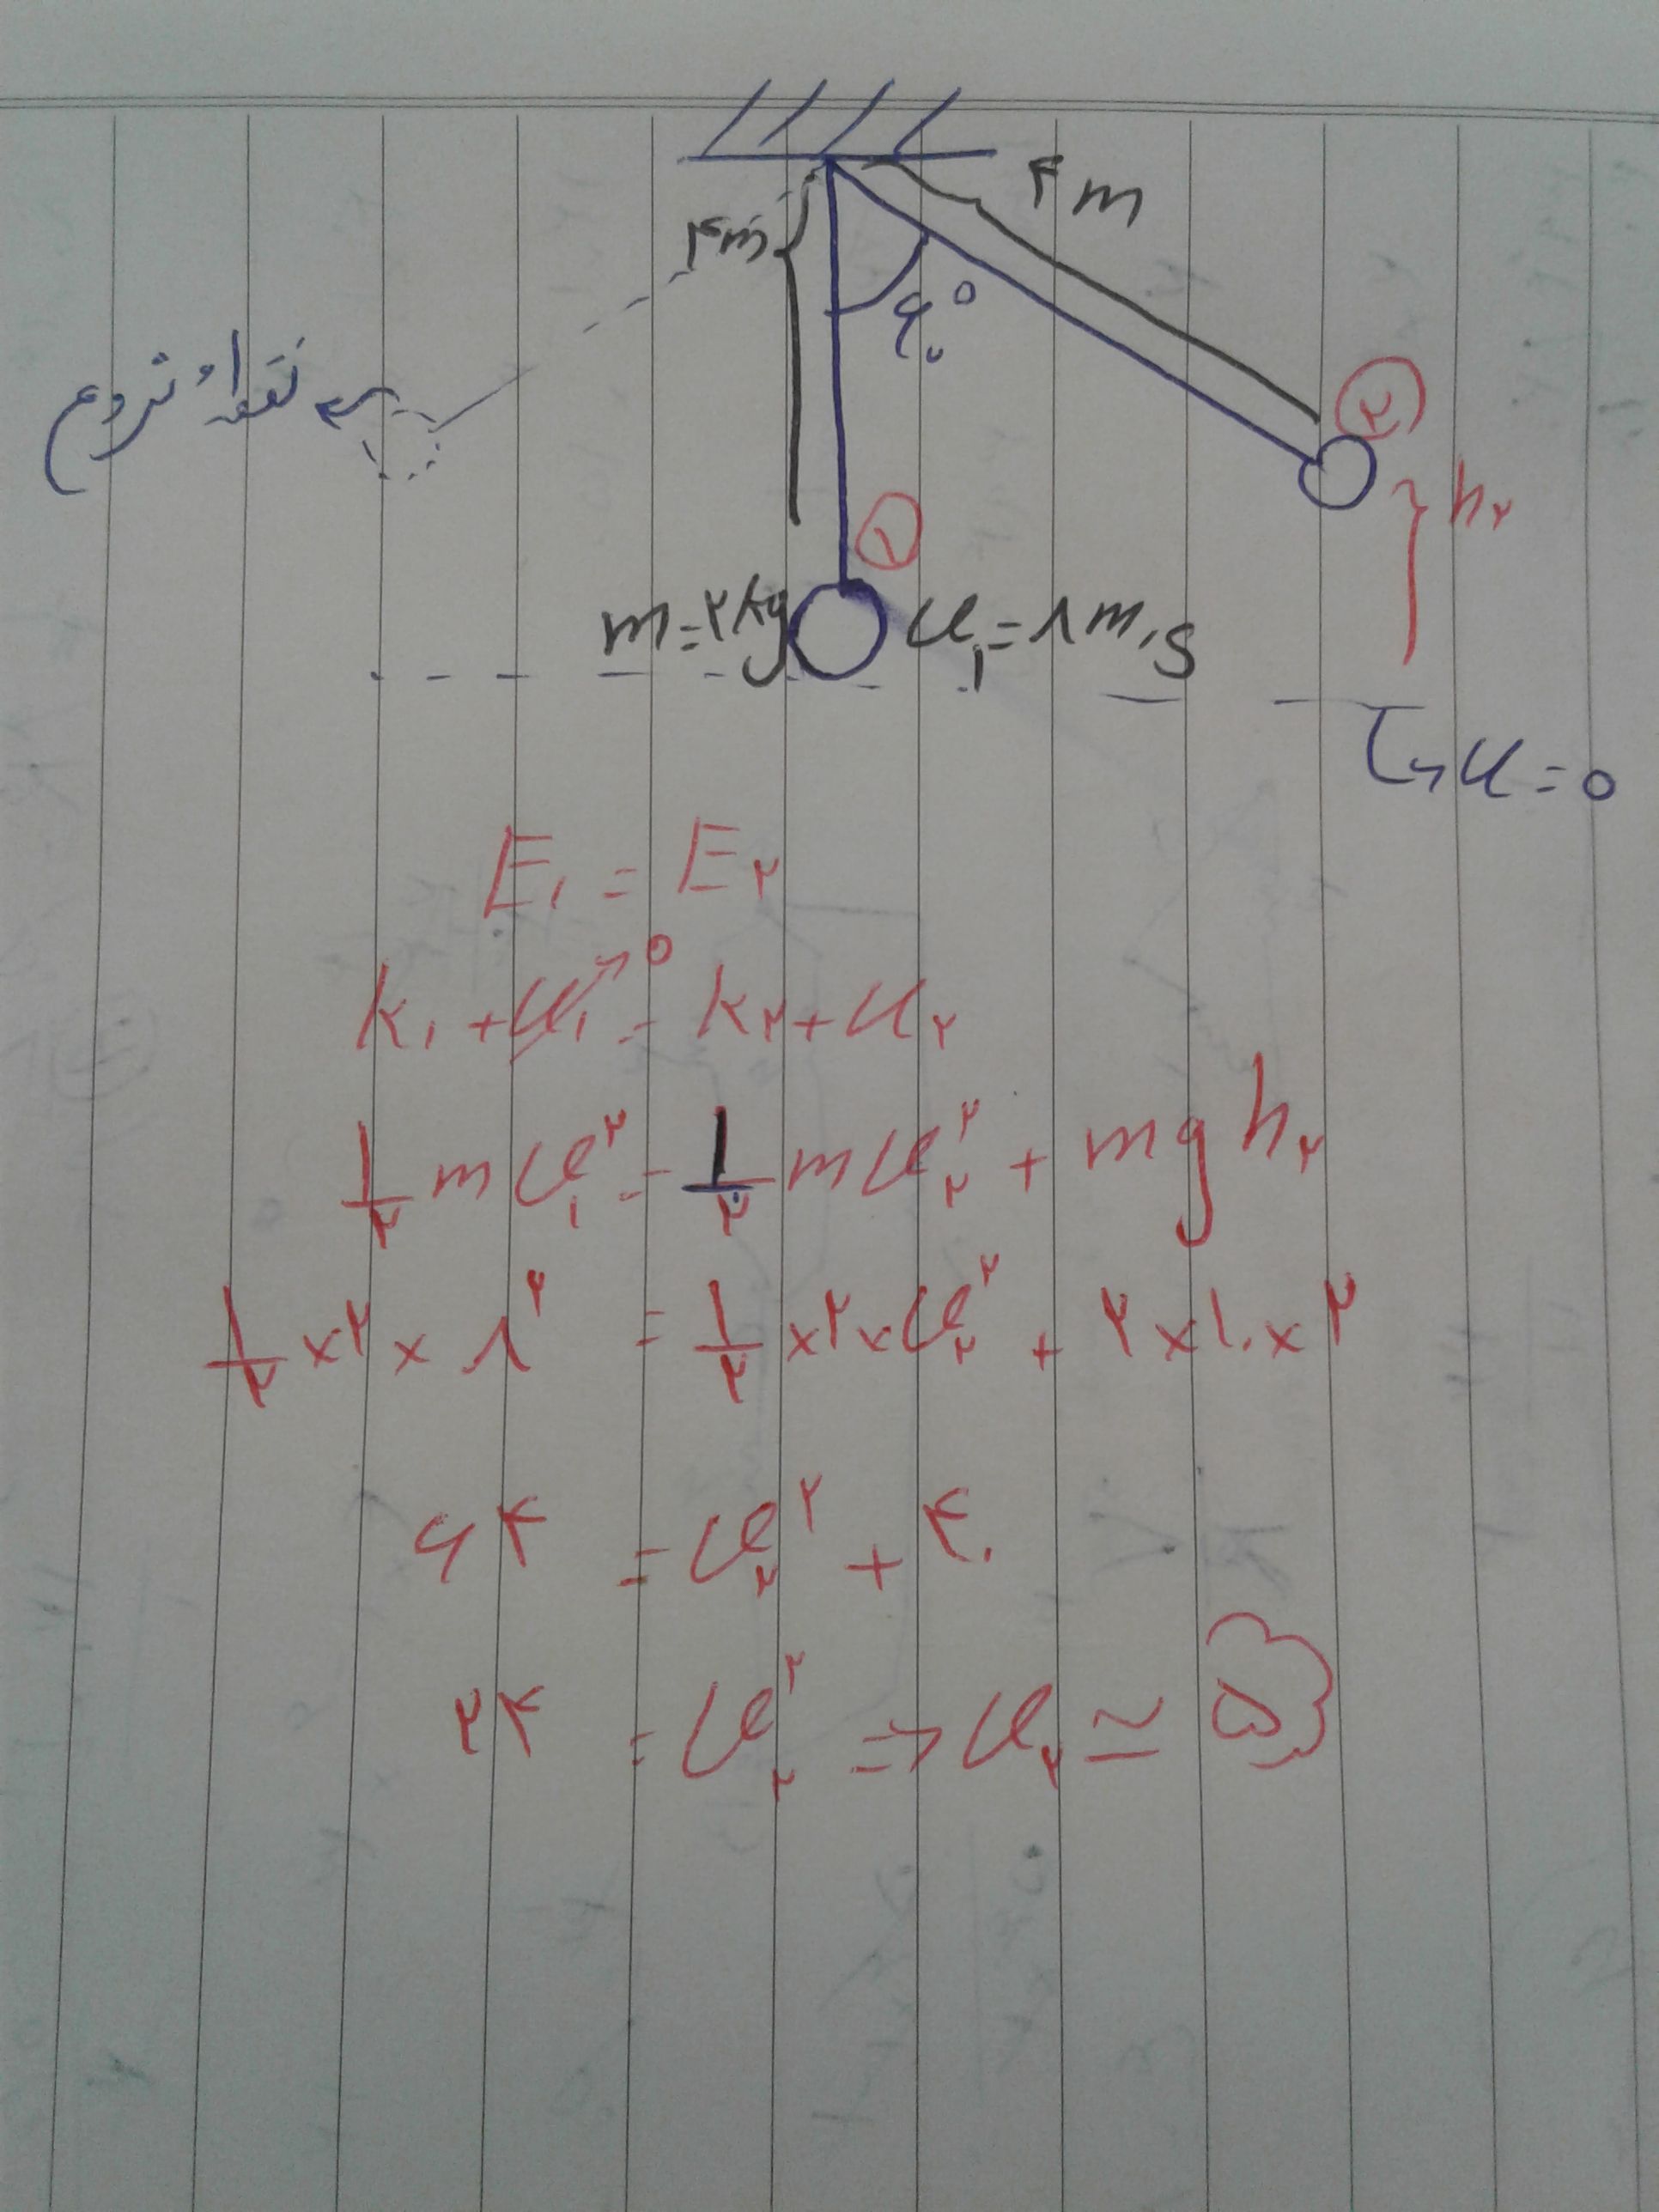 ۴m
۴m
۶۰°
نقطهٔ شروع
۲
h۲
۱
m=۲kg
v۱=۸m/s
u=0
E۱ = E۲
k۱+u۱→0 = k۲+u۲
۱/۲ mv۱^۲ = ۱/۲ mv۲^۲ + mgh۲
۱/۲ ×۲× ۸^۲ = ۱/۲ ×۲×v۲^۲ + ۲×۱۰×۲
۶۴ = v۲^۲ + ۴۰
۲۴ = v۲^۲ ⇒ v۲ ≃ ۵